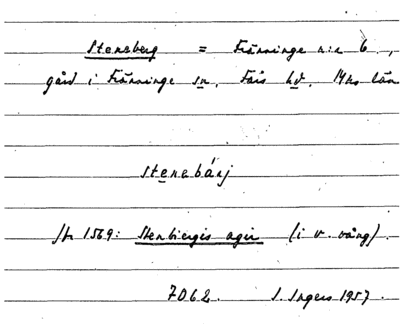 Stensberg = Fränninge n:r 6,
gård i Fränninge sn, Färs hd, Mhs län
stenabárj
Jb 1569: Stenbiergis ager (i v. vång).
7062. I. Ingers 1957.